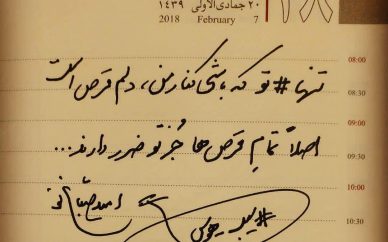 ۲۰ جمادی‌الاولی ۱۴۳۹
2018 February 7
۱۸
08:00
تنها #تو که باشی کنار من، دلم قرص است
08:30
09:00
اصلاً تمام قرص‌ها جُز تو ضرر دارند...
09:30
10:00
امید صباغ نو
10:30